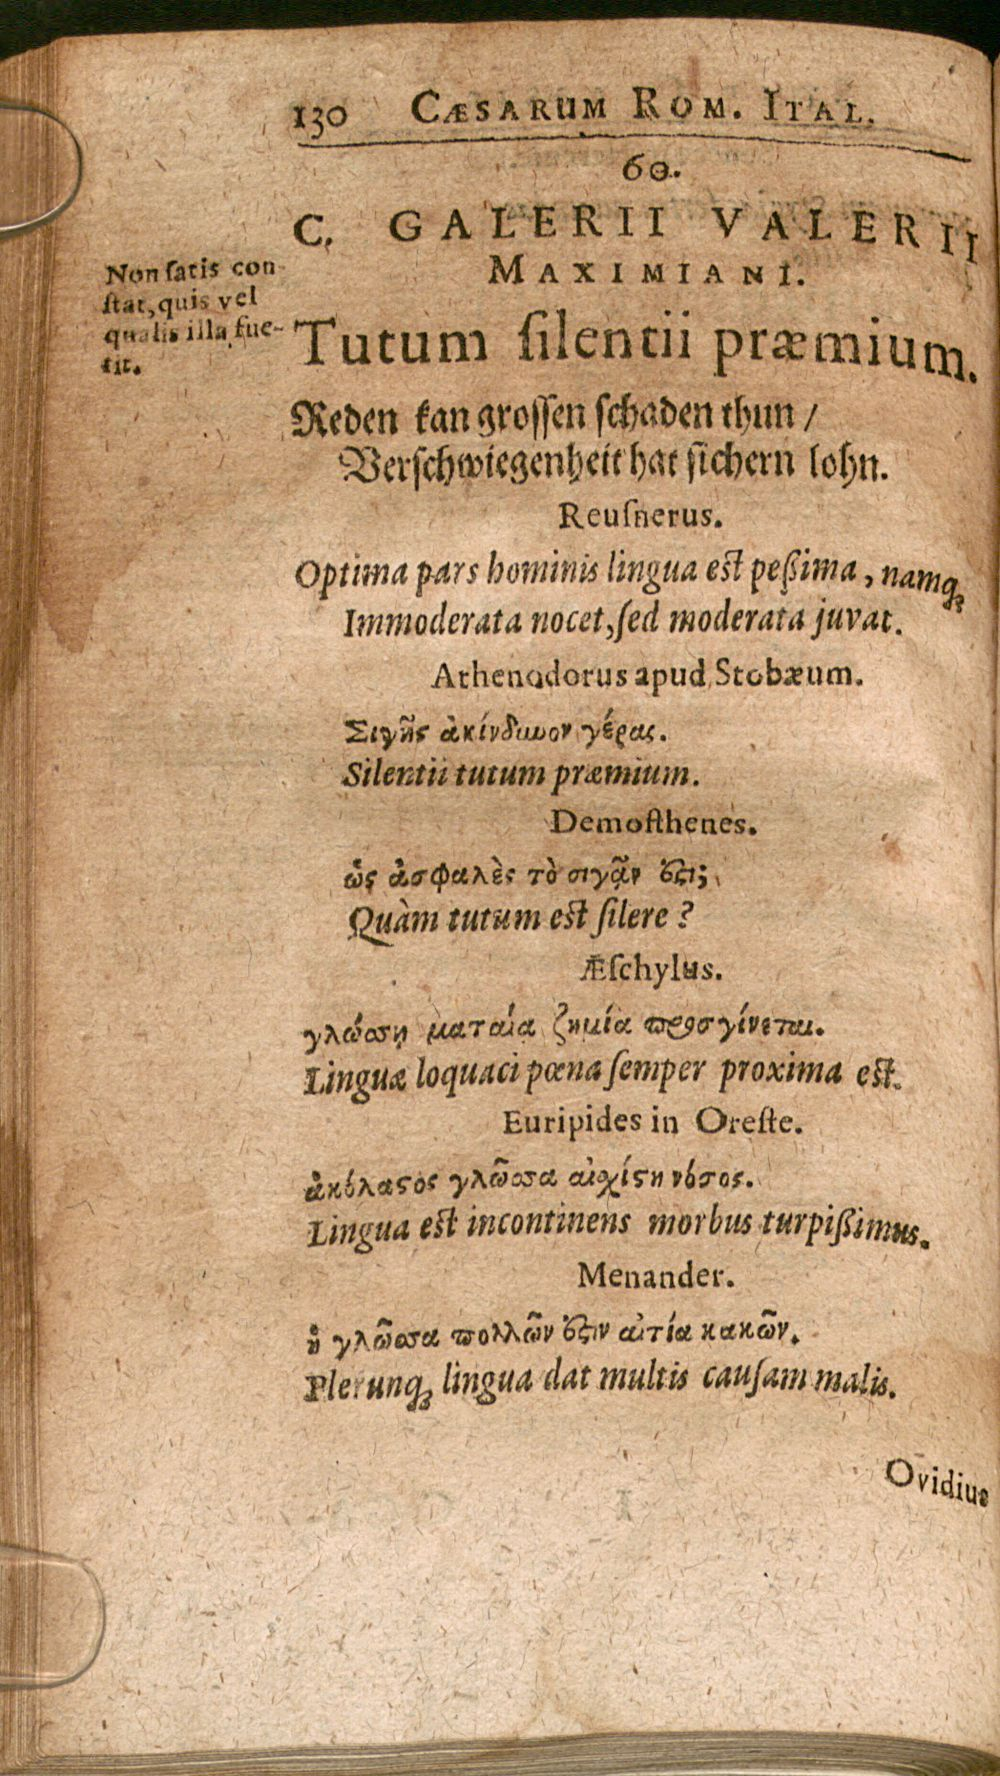 130 CÆSARUM ROM. ITAL.
60.
C. GALERII VALERII
MAXIMIANI.
Non ſatis con-
ſtat, quis vel
qualis illa fue-
rit.
Tutum ſilentii præmium.
Reden kan groſſen ſchaden thun /
Verſchwiegenheit hat ſichern lohn.
Reuſnerus.
Optima pars hominis lingua est peßima, namq́;
Immoderata nocet, ſed moderata juvat.
Athenodorus apud Stobæum.
Σιγῆς ἀκίνδυνον γέρας.
Silentii tutum præmium.
Demoſthenes.
ὡς ἀσφαλὲς τὸ σιγᾷν ἐστι;
Quàm tutum est ſilere?
Æſchylus.
γλώσσῃ ματαίᾳ ζημία προσγίνεται.
Linguæ loquaci pœna ſemper proxima est.
Euripides in Oreſte.
ἀκόλαστος γλῶσσα αἰχίστη νόσος.
Lingua est incontinens morbus turpißimus.
Menander.
ἡ γλῶσσα πολλῶν ἐστιν αἰτία κακῶν.
Plerunq; lingua dat multis cauſam malis.
Ovidius